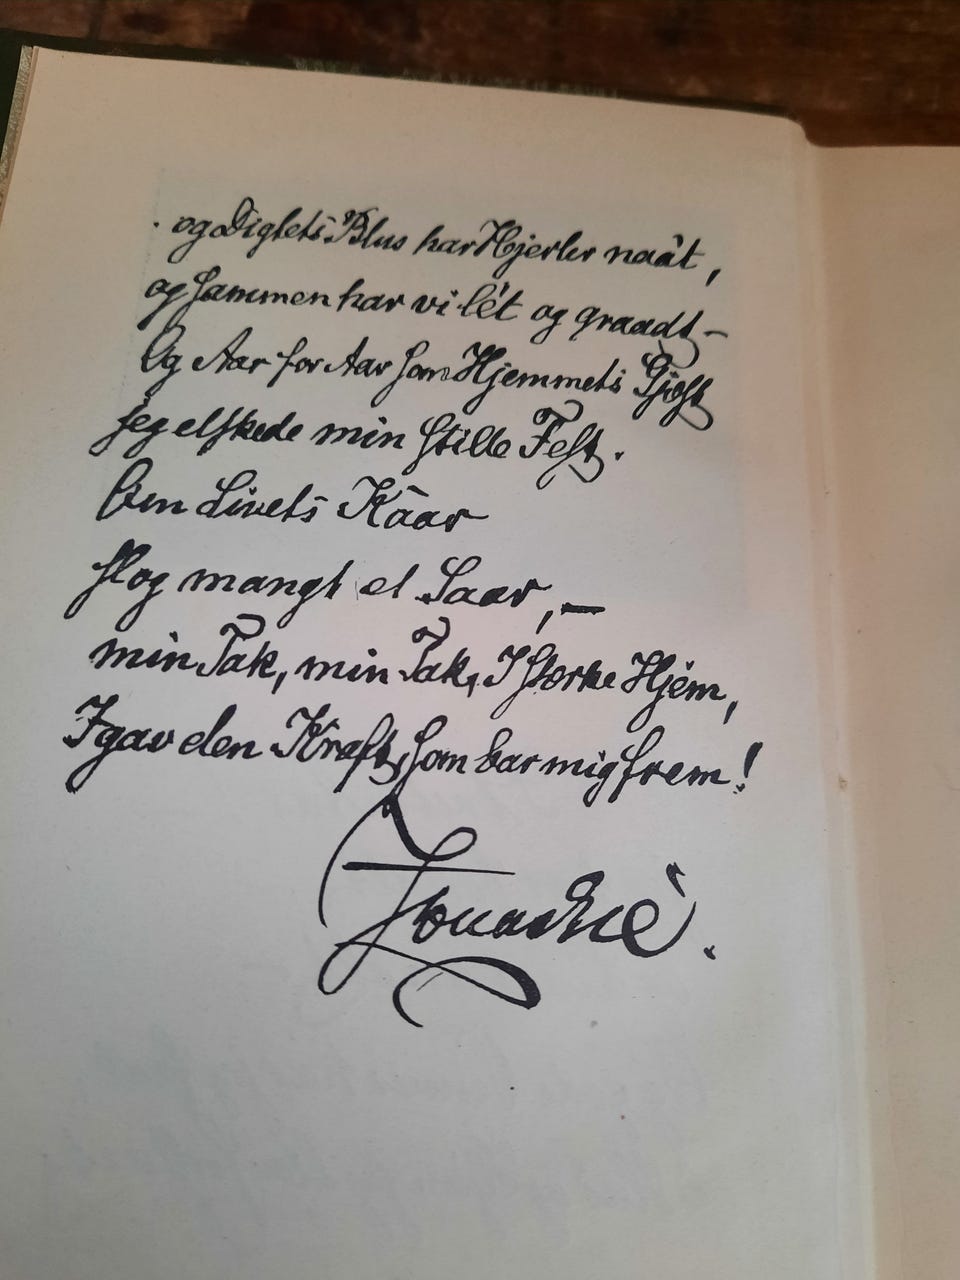 og Digtets Blus har Hjerter naát,
og sammen har vi lét og graadt –
Og Aar for Aar som Hjemmets Gjæst
jeg elskede min stille Fest.
Om Livets Kaar
slog mangt et Saar, –
min Tak, min Tak, I stærke Hjem,
I gav den Kraft, som bar mig frem!